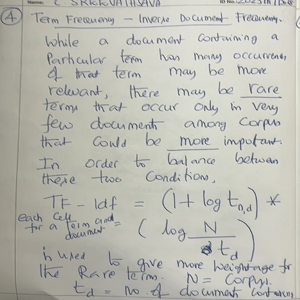 Name: C SRIKRIVATHSAVA
ID No.
④ Term Frequency - Inverse Document Frequency.
While a document containing a
Particular term has many occurrences
of that term may be more
relevant, there may be rare
terms that occur only in very
few documents among Corpus
that could be more important.
In order to balance between
these two Conditions,
TF-Idf = (1 + log t n,d) *
each Cell
for a term and
document = (log N / t d)
is used to give more weightage for
the Rare terms. N = Corpus.
t d = no of documents containing